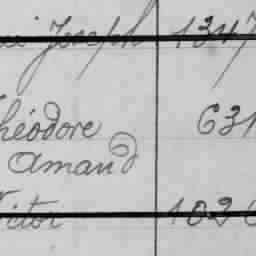 Joseph 1347
Théodore 631
Amand
Victor 102